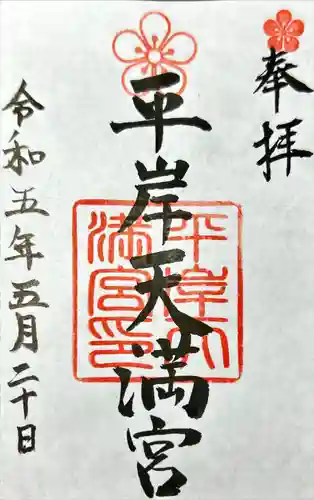 奉拝
平岸天満宮
平岸天満宮印
令和五年五月二十日